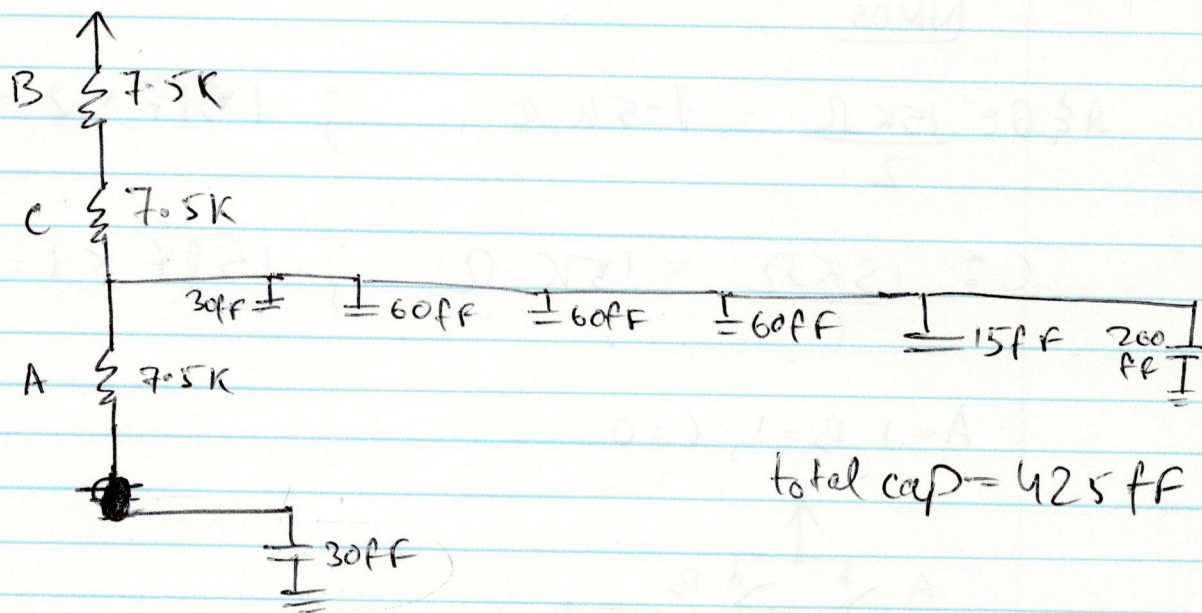 B 7.5K
C 7.5K
30fF 60fF 60fF 60fF 15fF 200
fF
A 7.5K
total cap = 425 fF
30fF